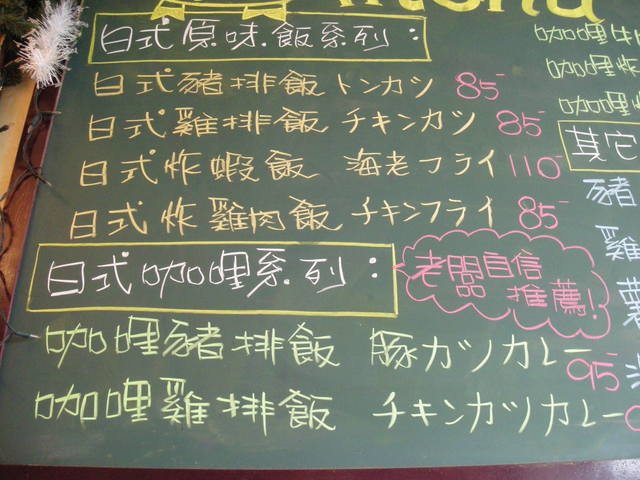 menu
日式原味飯系列：
日式豬排飯 トンカツ 85-
日式雞排飯 チキンカツ 85-
日式炸蝦飯 海老フライ 110-
日式炸雞肉飯 チキンフライ 85-
日式咖哩系列：
老闆自信
推薦！
咖哩豬排飯 豚カツカレー 95-
咖哩雞排飯 チキンカツカレー
咖哩牛
咖哩炸
咖哩炸
其它
豬
雞
薯